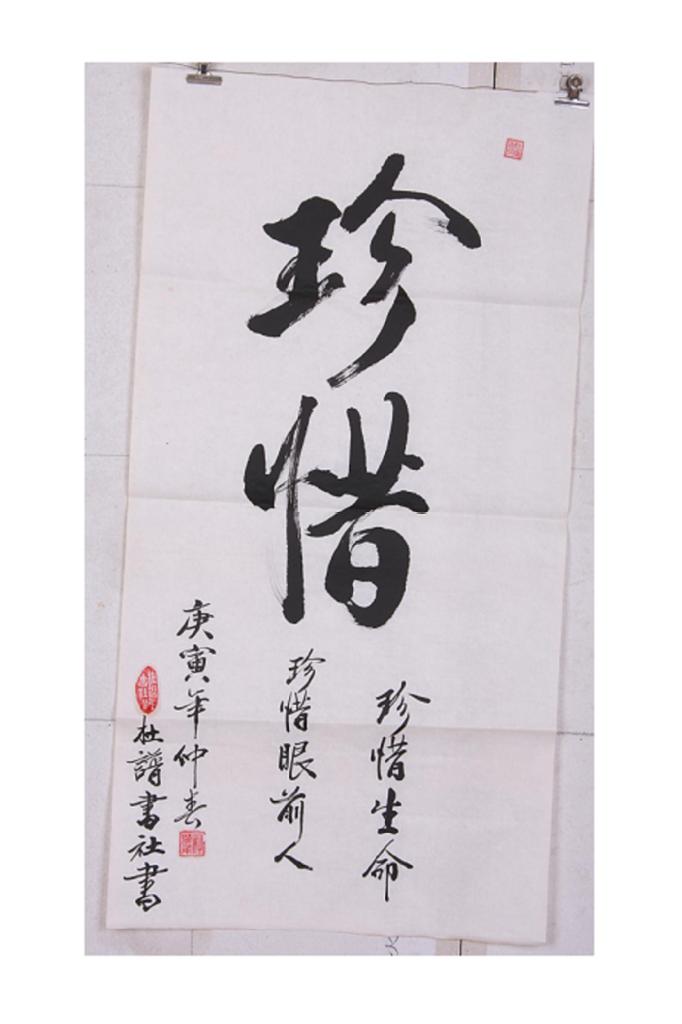 珍惜
珍惜生命
珍惜眼前人
庚寅年仲春
杜谱書社書